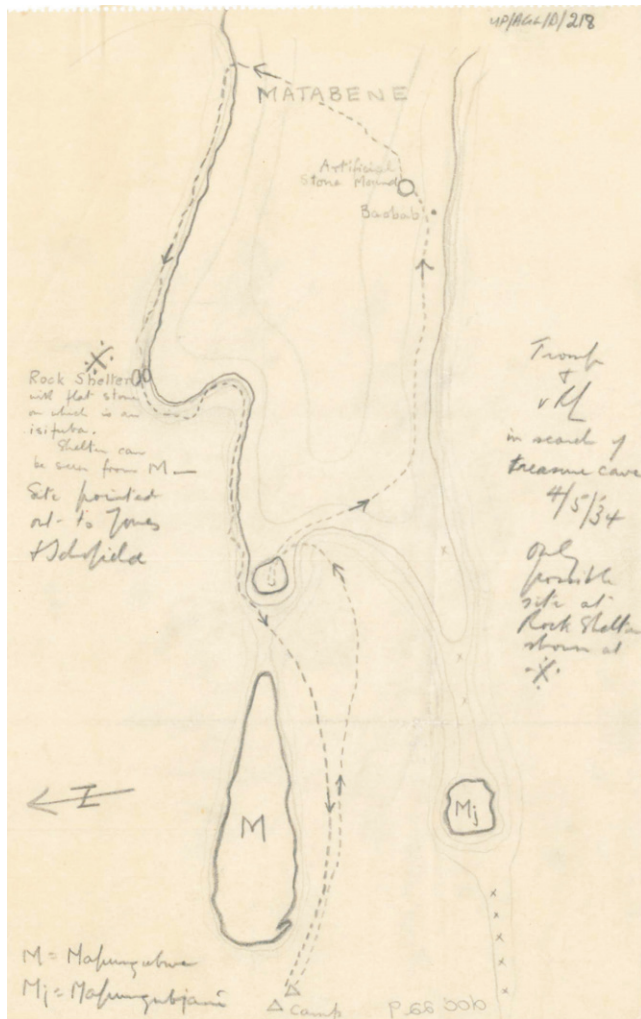 UP/AGL/D/218
MATABENE
Artificial
Stone Mound
Baobab
Rock Shelter
with flat stone
on which is an
isifuba.
Shelter can
be seen from M
Site pointed
out to Jones
& Schofield
Tromp
&
v R
in search of
treasure cave
4/5/34
only
possible
site at
Rock Shelter
shown at
J
N
M
Mj
M = Mapungubwe
Mj = Mapungubjani
Camp